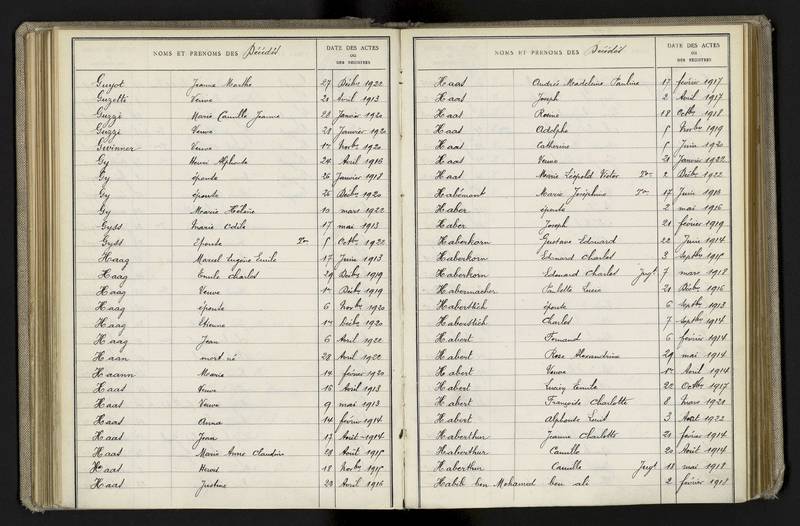 NOMS ET PRENOMS DES Décédés
DATE DES ACTES
OU
DES REGISTRES
Guyot Jeanne Marthe 27 Décbre 1922
Guzetti Veuve 20 Avril 1913
Guzzi Marie Camille Jeanne 28 Janvier 1920
Guzzi Veuve 28 Janvier 1920
Gwinner Veuve 14 Novbre 1920
Gy Henri Alphonse 24 Avril 1916
Gy épouse 26 Janvier 1918
Gy épouse 26 Décbre 1920
Gy Marie Hélène 10 mars 1922
Gyss Marie Odile 17 mai 1913
Gyss Epouse Ton 5 Octbre 1922
Haag Marcel Eugène Emile 17 Juin 1913
Haag Emile Charles 29 Décbre 1919
Haag Veuve 1er Décbre 1919
Haag épouse 6 Novbre 1920
Haag Etienne 1er Décbre 1920
Haag Jean 6 Avril 1922
Haan mort né 28 Avril 1922
Haann Marie 14 février 1920
Haas Veuve 16 Avril 1913
Haas Veuve 9 mai 1913
Haas Anna 14 février 1914
Haas Jean 17 Août 1914
Haas Marie Anne Claudine 28 Août 1915
Haas Henri 18 Novbre 1915
Haas Justine 20 Avril 1916
NOMS ET PRENOMS DES Décédés
DATE DES ACTES
OU
DES REGISTRES
Haas Andrée Madeleine Pauline 17 février 1917
Haas Joseph 2 Avril 1917
Haas Rosine 18 Octbre 1918
Haas Adolphe 5 Novbre 1919
Haas Catherine 5 Juin 1920
Haas Veuve 21 Janvier 1922
Haas Marie Léopold Victor Ton 2 Décbre 1922
Habémont Marie Joséphine Ton 17 Juin 1913
Haber épouse 2 mai 1916
Haber Joseph 21 février 1919
Haberkorn Gustave Edouard 22 Juin 1914
Haberkorn Edouard Charles 3 Septbre 1915
Haberkorn Edouard Charles Jugt 7 mars 1918
Habermacher Paulette Lucie 21 Décbre 1916
Haberstich épouse 6 Septbre 1913
Haberstich Charles 7 Septbre 1914
Habert Fernand 6 février 1914
Habert Rose Alexandrine 29 mai 1914
Habert Veuve 1er Avril 1914
Habert Lucien Emile 20 Octbre 1917
Habert Françoise Charlotte 8 Mars 1920
Habert Alphonse Louis 3 Août 1922
Haberthur Jeanne Charlotte 20 février 1914
Haberthur Camille 20 Août 1914
Haberthur Camille Jugt 18 mai 1918
Habib ben Mohamed ben ali 2 février 1918